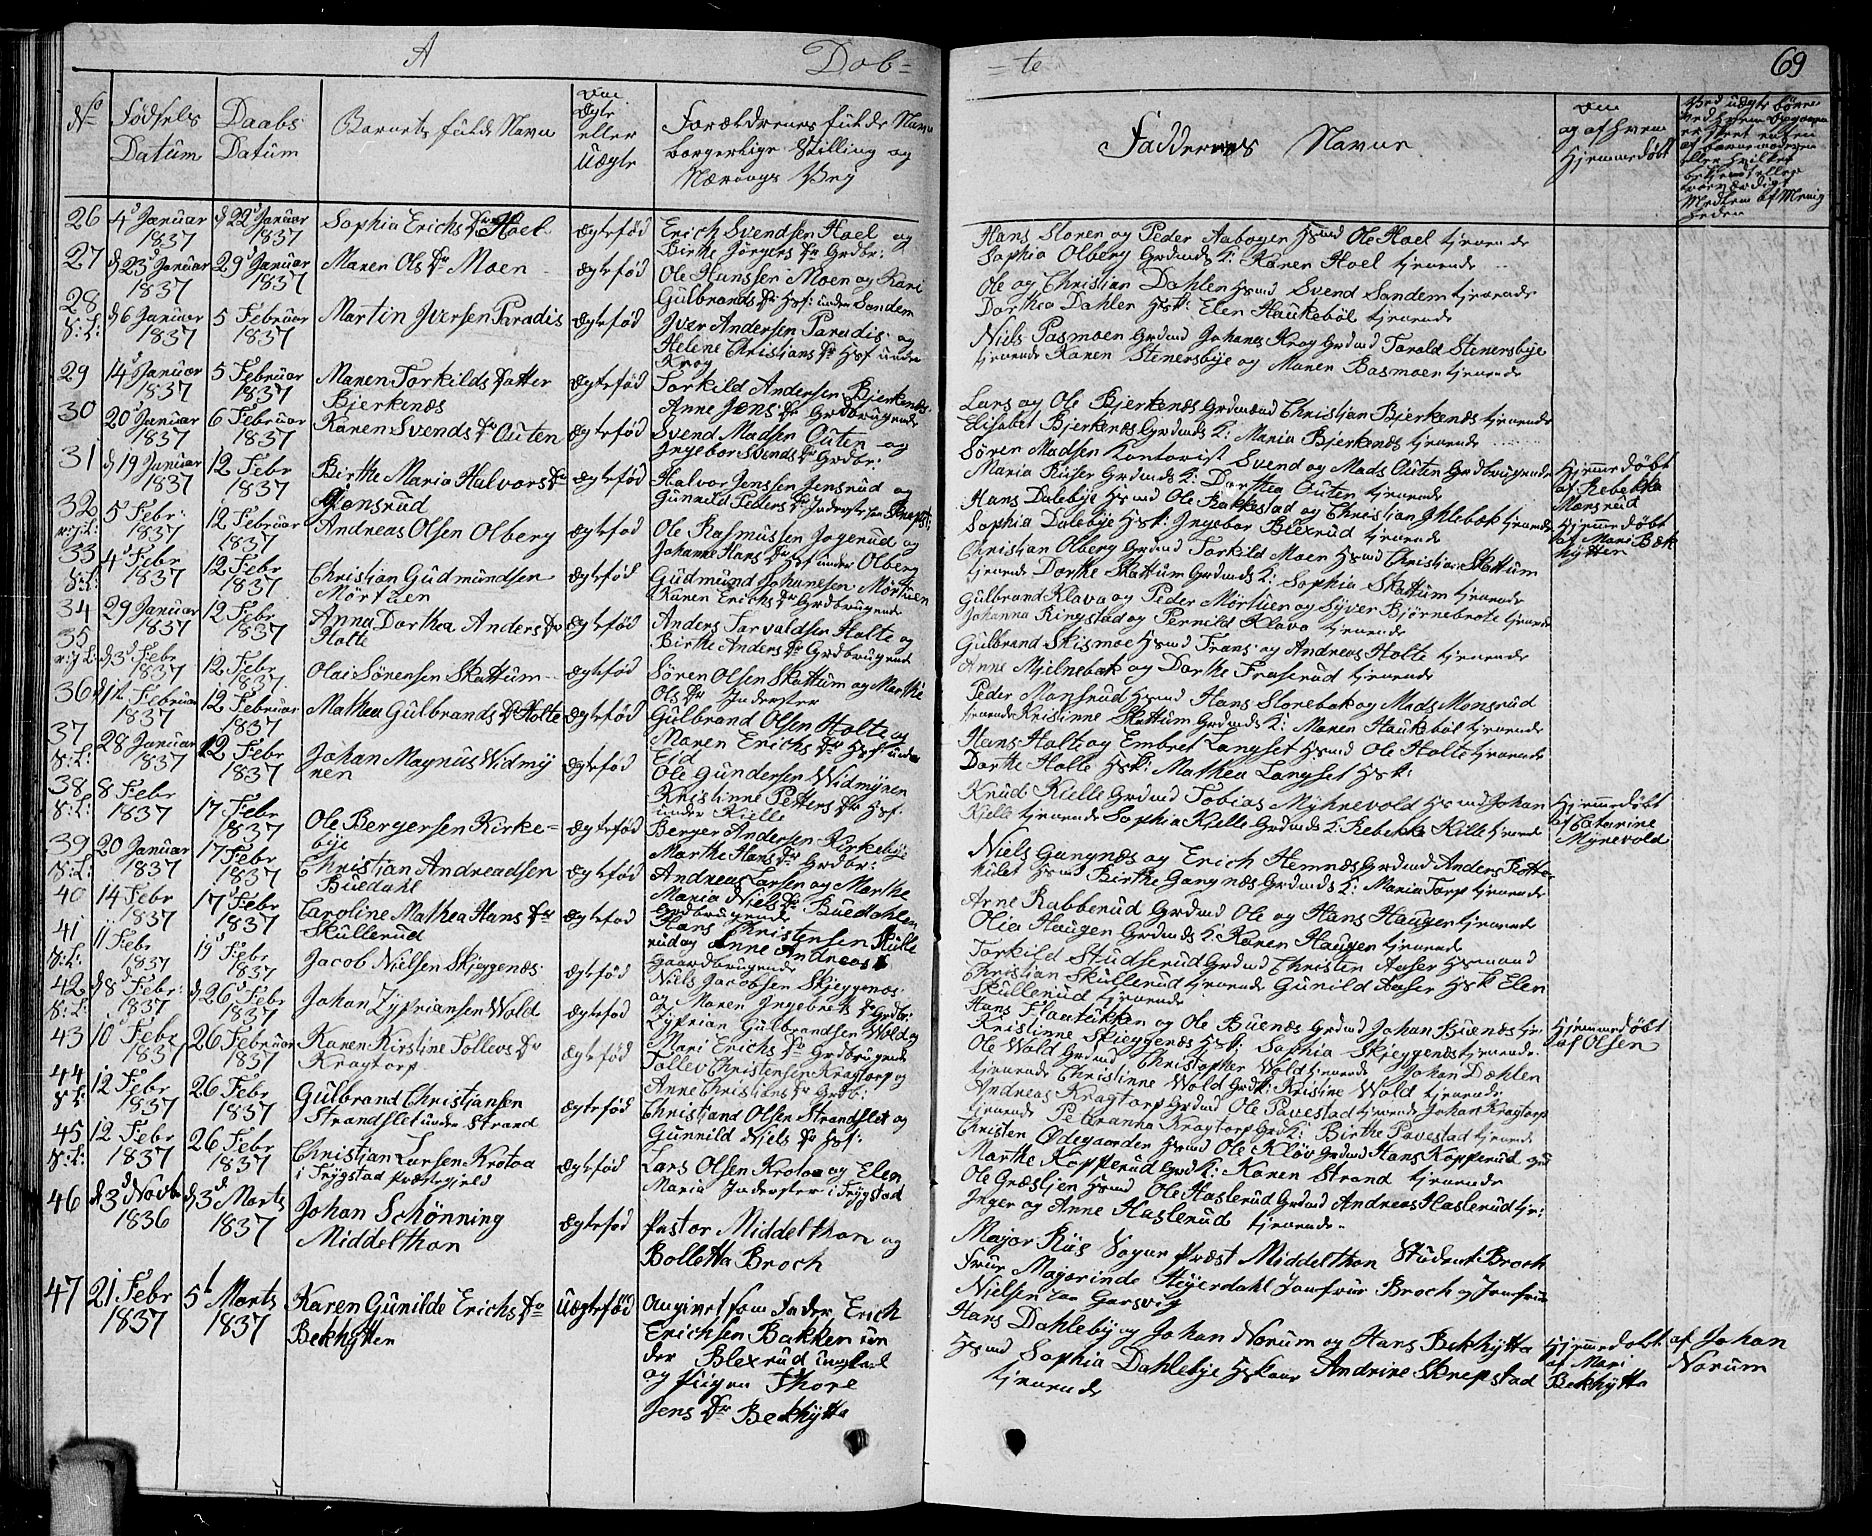 A
Døb=
=te
69
No
Fødsels
Datum
Daabs
Datum
Barnets fulde Navn
Om
Ægte
eller
Uægte
Forældrenes fulde Navn
borgerlige Stilling og
Nærings Vey
Faddernes Navne
Om
og af hvem
hjemmedøbt
26 4d Januar 1837 d 22d Januar 1837 Sophia Erichs Dr Hoel Ægtefød Erich Svendsen Hoel og
Birthe Jørgens Dr Grdbr:
Hans Sloren og Peder Aabogen Hsmd Ole Hoel tjenende
Sophia Olberg Grdmds K: Karen Hoel tjenende
27 d 23d Januar 1837 29d Januar 1837 Maren Ols Dr Moen Ægtefød Ole Hanssen Moen og Kari
Gulbrands Dr Hsf: under Sandem
Ole og Christian Dahlen Hsmd Svend Sandem tjenende
Dorthea Dahlen Hsk: Elen Haukebøl tjenende
28 S:L: d 6 Januar 1837 5 Februar 1837 Martin Iversen Paradis Ægtefød Iver Andersen Paradis og
Helene Christians Dr Hsf under
Krog
Niels Pasmoen Grdmd Johanes Krog Grdmd Tarald Stenersbye
tjenende Karen Stenersbye og Maren Basmoen tjenende
29 14d Januar 1837 5 Februar 1837 Maren Torkilds Datter
Bjerkenæs Ægtefød Torkild Andersen Bjerkenæs
Anne Jens Dr Grdbrugende
Lars og Ole Bjerkenæs Grdmænd Christian Bjerkenæs tjenende
Elisabet Bjerkenæs Grdmds K: Maria Bjerkenæs tjenende
30 20d Januar 1837 6 Februar 1837 Karen Svends Dr Outen Ægtefød Svend Madsen Outen og
Ingebor Svends Dr Grdbr:
Søren Madsen Kontorist Svend og Mads Outen Grdbrugende
Maria Riiser Grdmds K: Dorthea Outen tjenende
31 d 19 Januar 1837 12 Febr 1837 Birthe Maria Halvors Dr
Jensrud Ægtefød Halvor Jenssen Jensrud og
Gunnild Peders Dr
Hans Dalebye Hsmd Ole Rakkestad og Christian Ihlebæk tjenende
Sophia Dalebye Hsk: Ingebor Blexrud tjenende
Hjemmedøbt
af Rebekka
Mansrud
32 5 Febr: 1837 12 Februar 1837 Andreas Olsen Olberg Ægtefød Ole Rasmussen Jogerud og
Johanne Hans Dr Hsf under Olberg
Christian Olberg Grdmd Torkild Moen Hsmd Christian Skattum
tjenende Dorthe Skattum Grdmds K: Sophia Skattum tjenende
Hjemmedøbt
af Mari Bek
hytten
33 S:L: 4d Febr 1837 12 Febr 1837 Christian Gudmundsen
Mørtuen Ægtefød Gudmund Johanesen Mørtuen
Karen Erichs Dr Grdbrugende
Gulbrand Klava og Peder Mørtuen og Syver Bjørnebrote tjenende
Johanna Ringstad og Pernild Klava tjenende
34 29 Januar 1837 12 Febr 1837 Anna Dorthea Anders Dr
Holte Ægtefød Anders Tarvaldsen Holte og
Birthe Anders Dr Grdbrugende
Gulbrand Skismoe Hsmd Frans og Andreas Holte tjenende
Anne Mjelnebak og Dorthe Fraserud tjenende
35 d 3d Febr 1837 12 Febr 1837 Olai Sørensen Skattum Ægtefød Søren Olsen Skattum og Marthe
Ols Dr Inderster
Peder Monsrud Hsmd Hans Slorebak og Mads Monsrud
tjenende Kristinne Skattum Grdmds K: Maren Haukebøl tjenende
36 Februar 1837 12 Februar 1837 Mathea Gulbrands Dr Holte Ægtefød Gulbrand Olsen Holte og
Maren Erichs Dr Hsf: under
Eid
Hans Holte og Embret Langset Hsmd Ole Holte tjenende
Dorthe Holte Hsk: Mathea Langset Hsk:
37 S:L: 28 Januar 1837 12 Febr 1837 Johan Magnus Widmy
nen Ægtefød Ole Gundersen Widmynen
Kristinne Petters Dr Hsf:
under Kielle
Knud Kielle Grdmd Tobias Myhrevold Hsmd Johan
Kielle tjenende Sophia Kielle Grdmds K: Rebekka Kille tjenende
Hjemmedøbt
af Catarine
Myrevold
38 S:L: 8 Febr 1837 17 Febr 1837 Ole Bergersen Kirke=
bye Ægtefød Berger Andersen Kirkebye
Marthe Hans Dr Grdbr:
Niels Gangnæs og Erich Hemnæs Grdmd Anders Rotte
hulet Hsmd Birthe Gangnæs Grdmds K: Maria Torp tjenende
39 S:L: 20 Januar 1837 17 Febr 1837 Christian Andreadsen
Buedahl Ægtefød Andreas Larsen og Marthe
Maria Niels Dr Buedahlen
Grdbrugende
Arne Rabberud Grdmd Ole og Hans Haugen tjenende
Olia Haugen Grdmds K: Karen Haugen tjenende
40 14 Febr 1837 17 Febr 1837 Caroline Mathea Hans Dr
Skullerud Ægtefød Hans Christensen Skulle
rud og Anne Andreas
Gaardbrugende
Torkild Studserud Grdmd Christen Aaser Hsmand
Christian Skullerud tjenende Gunild Aaser Hsk Elen
Skullerud tjenende
41 S:L: 11 Febr 1837 19d Febr 1837 Jacob Nielsen Skjeggenæs Ægtefød Niels Jacobsen Skjeggenæs
og Maren Ingebrets Dr Grdbr:
Hans Flaatukken og Ole Buenæs Grdmd Johan Buenæs tje
Kristinne Skjeggenæs Hsk: Sophia Skjeggenæs tjenende
Hjemmedøbt
af Olsen
42 S:L: d 8d Febr: 1837 d 26d Febr 1837 Johan Zyprianssen Wold Ægtefød Zyprian Gulbrandsen Wold og
Mari Erichs Dr Grdbrugende
Ole Wold Grdmd Christopher Wold tjenende Johan Dæhlen
tjenende Christinne Wold Grdk: Kristine Wold tjenende
43 10d Febr 1837 26 Februar 1837 Karen Kirstine Tollevs Dr
Kragtorp Ægtefød Tollev Christensen Kragtorp og
Anne Christians Dr Grdb:
Andreas Kragtorp Grdmd Ole Pavestad tjenende Johan Kragtorp
tjenende Petranna Kragtorp Grdk: Birthe Pavestad tjenende
44 S:L: 12 Febr 1837 26 Febr 1837 Gulbrand Christiansen
Strandslet under Strand Ægtefød Christiand Olsen Strandslet og
Gunnild Niels Dr Hsf:
Christen Ødegaarden Hsmd Ole Kløv Grdmd Hans Kopperud
Marthe Kopperud Grdk: Karen Strand tjenende
45 S:L: 12 Febr 1837 26 Febr 1837 Christian Larsen Krotoa
i Trygstad præstegield Ægtefød Lars Olsen Krotoa og Elen
Maria Inderster i Trygstad
Ole Græsljen Hsmd Ole Haslerud Grdmd Andreas Haslerud tje:
Inger og Anne Haslerud tjenende
46 d 3d Novb 1836 d 3d Marts 1837 Johan Schønning
Middelthon Ægtefød Pastor Middelthon og
Bolletta Broch
Major Riis Sogne Præst Middelthon Student Broch
Frue Majorinde Heyerdahl Jomfrue Broch og Jomfrue
Nielsen
47 21 Febr 1837 5t Marts 1837 Karen Gunilde Erichs Dr
Bekhytten Uægtefød Angivet som Fader Erich
Erichsen Bakken un
der Blexrud ungkarl
og pigen Thore
Jens Dr Bekhytta
Hans Dahleby og Johan Norum og Hans Bekhytta
Hsmd Sophia Dahlebye Hskone Andrine Sknepstad
tjenende
Hjemmedøbt
af Mari
Bekhytta
af Johan
Norum